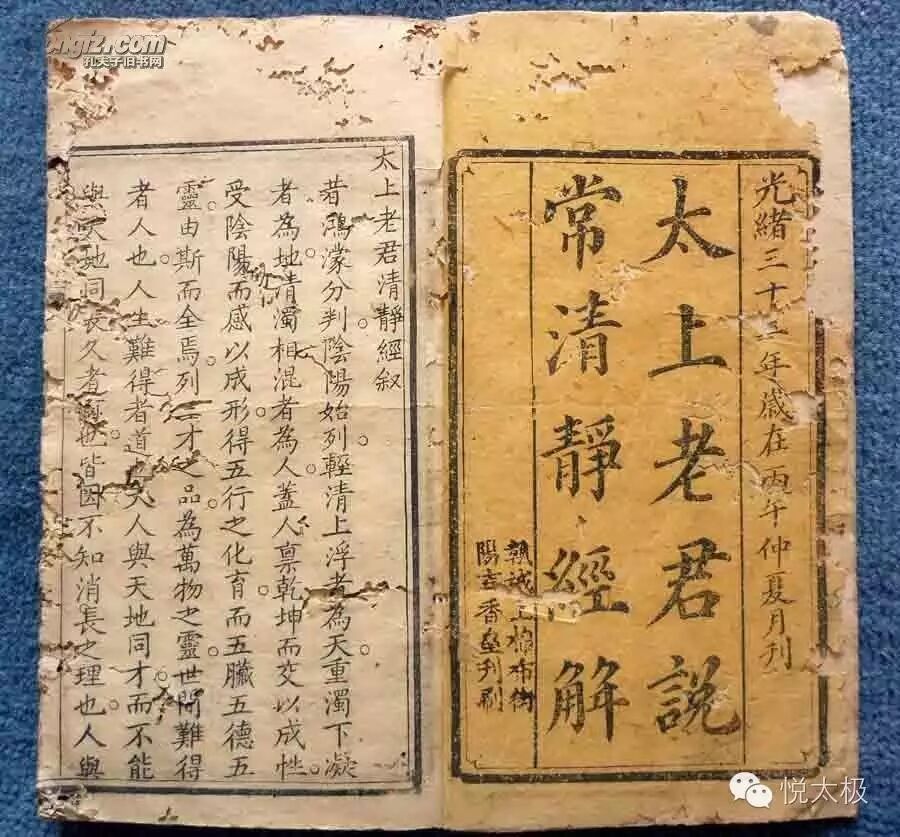 光緒三十三年歲在丙午仲夏月刊
太上老君說
常清靜經解
棉布街
香堂刊刷
太上老君清靜經叙
昔鴻蒙分判陰陽始列輕清上浮者為天重濁下凝
者為地清濁相混者為人蓋人禀乾坤而交以成性
受陰陽而感以成形得五行之化育而五臟五德五
靈由斯而全焉列三才之品為萬物之靈世間難得
者人也人生難得者道也人與天地同才而不能
與天地同長久者世皆因不知消長之理也人與
kongfz.com
孔夫子旧书网
悦太极